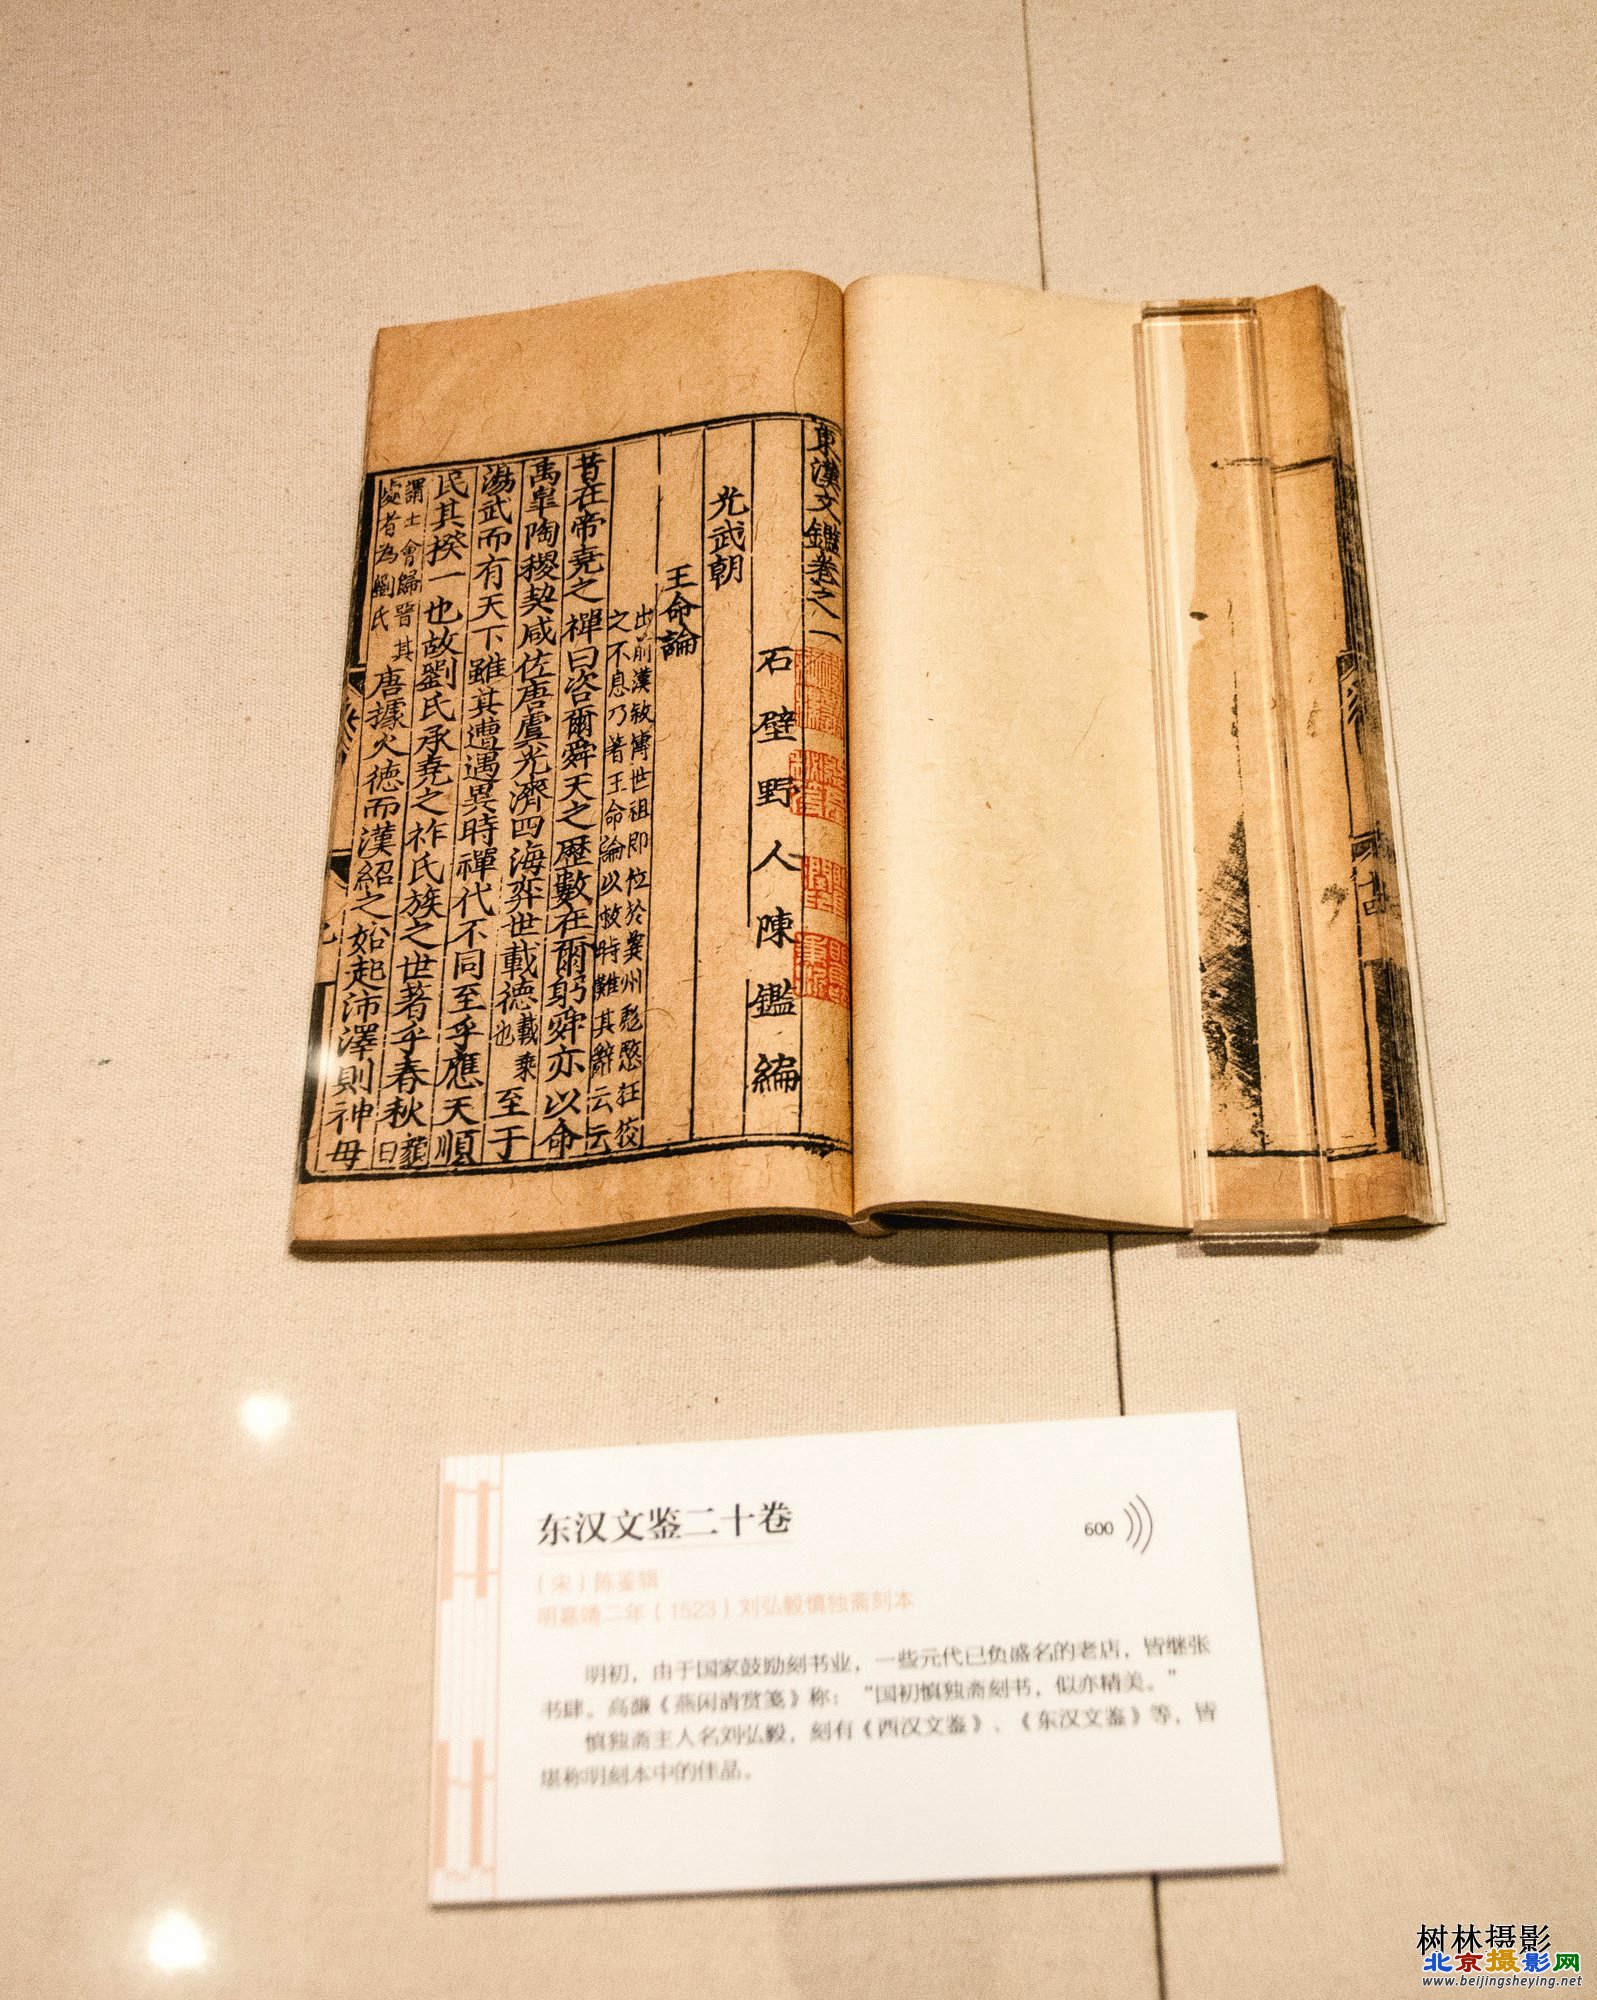 東漢文鑑卷之一
石壁野人陳鑑編
光武朝
王命論
出前漢敘傳世祖即位於冀州愍狂狡
之不息乃著王命論以救時難其辭云云
昔在帝堯之禪曰咨爾舜天之歷數在爾躬舜亦以命
禹臯陶稷契咸佐唐虞光濟四海弈世載德載乘也至于
湯武而有天下雖其遭遇異時禪代不同至乎應天順
民其揆一也故劉氏承堯之祚氏族之世著乎春秋
謂士會歸晉其處者為劉氏唐據火德而漢紹之始起沛澤則神母
东汉文鉴二十卷
600
（宋）陈鉴辑
明嘉靖二年（1523）刘弘毅慎独斋刻本
明初，由于国家鼓励刻书业，一些元代已负盛名的老店，皆继张
书肆。高濂《燕闲清赏笺》称：“国初慎独斋刻书，似亦精美。”
慎独斋主人名刘弘毅，刻有《西汉文鉴》、《东汉文鉴》等，皆
堪称明刻本中的佳品。
树林摄影
北京摄影网
www.beijingsheying.net